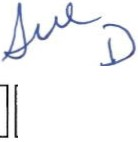 Sue
D